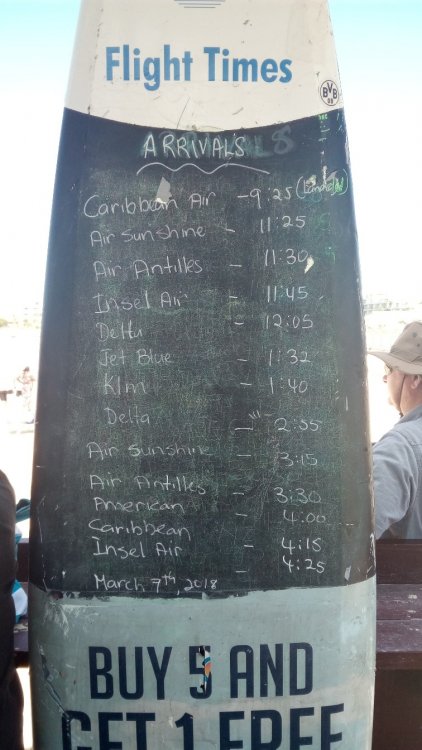 Flight Times
BVB
09
ARRIVALS
Caribbean Air - 9:25 (Landed)
Air Sunshine - 11:25
Air Antilles - 11:30
Insel Air - 11:45
Delta - 12:05
Jet Blue - 1:32
Klm - 1:40
Delta - 2:55
Air Sunshine - 3:15
Air Antilles - 3:30
American - 4:00
Caribbean - 4:15
Insel Air - 4:25
March 7th, 2018
BUY 5 AND
GET 1 FREE